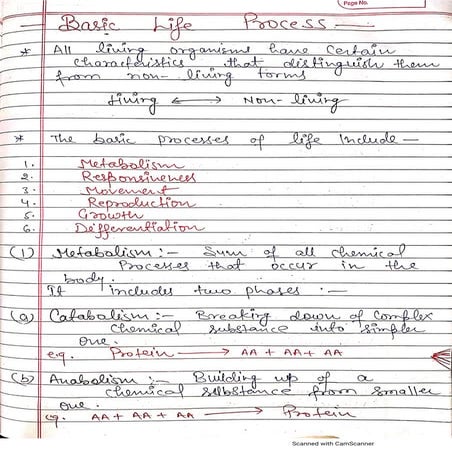 Page No.
Basic Life Process :-
* All living organisms have certain
characteristics that distinguish them
from non-living forms
Living ⟷ Non-living
* The basic processes of life include —
1. Metabolism
2. Responsiveness
3. Movement
4. Reproduction
5. Growth
6. Defferentiation
(1) Metabolism :- Sum of all chemical
Processes that occur in the
body.
It includes two phases :-
(a) Catabolism :- Breaking down of Complex
chemical substance into simpler
one.
e.g. Protein ⟶ AA + AA + AA
(b) Anabolism :- Building up of a
chemical substance from smaller
one.
eg. AA + AA + AA ⟶ Protein
Scanned with CamScanner